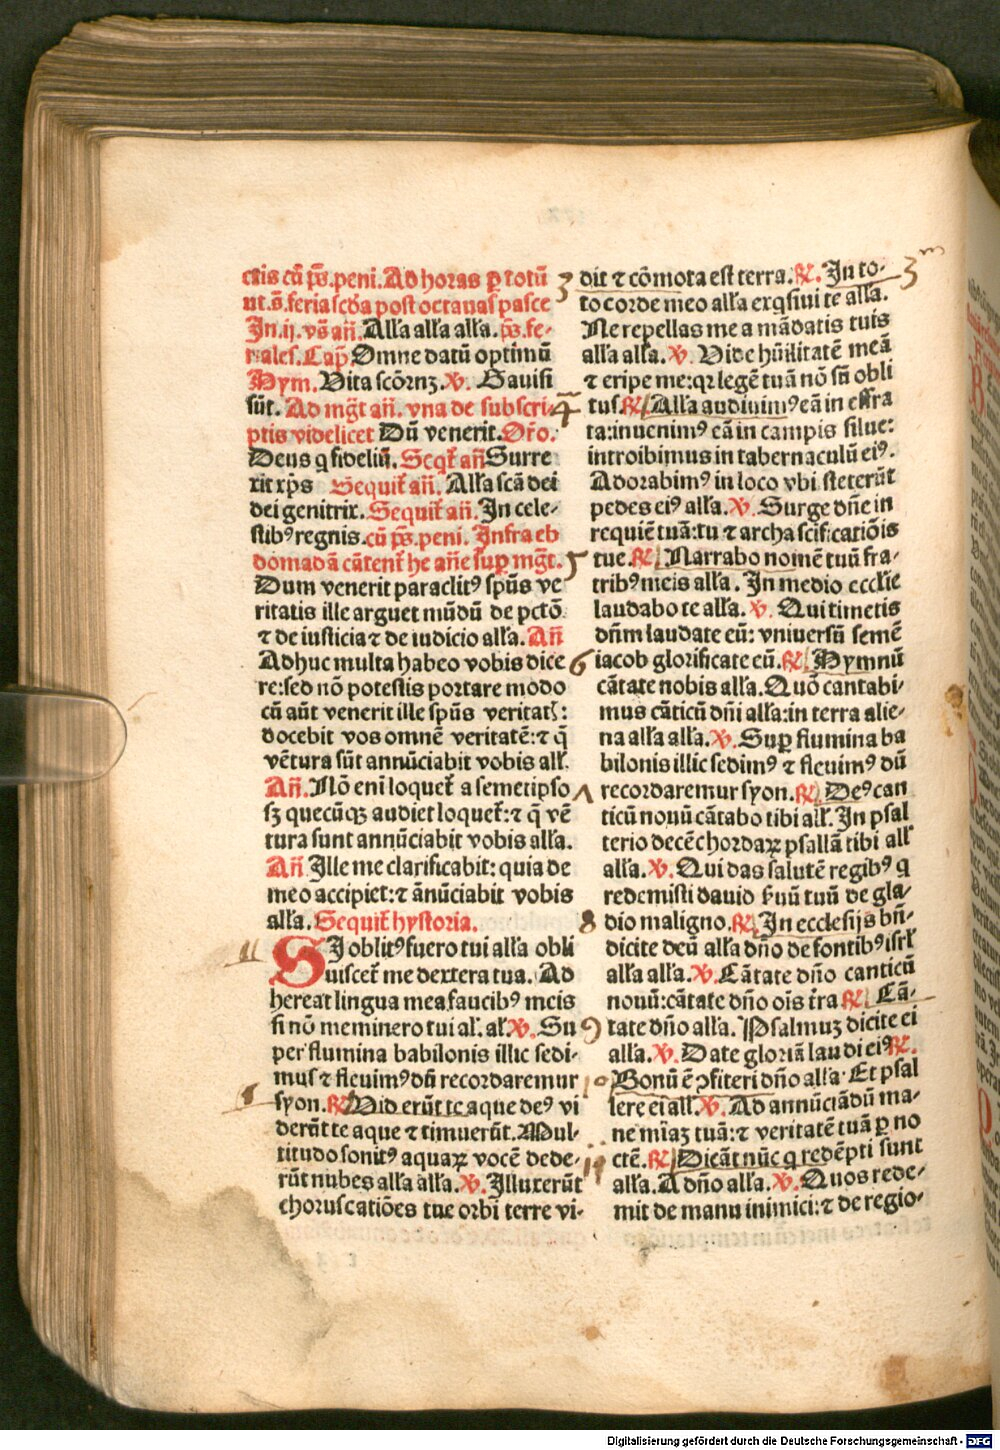 ctis cū p̄s. peni. Ad horas ꝑ totū
ut. s̄. feria scd̄a post octauas pasce
In .ij. vs̄ añ. Alľa alľa alľa. p̄s. fe-
riales. Cap̄. Omne datū optimū
Hym. Vita scōruꝫ. ℣. Gauisi
sūt. Ad mḡt añ. vna de subscri-
ptis videlicet Dū venerit. Or̄o.
Deus q fideliū. Seqt̄ añ Surre
xit xp̄s Sequit̄ añ. Alľa scā dei
dei genitrix. Sequit̄ añ. In cele-
stibꝰ regnis. cū p̄s. peni. Infra eb
domadā cātent̄ he añe suꝑ mḡt.
Dum venerit paraclitꝰ sp̄us ve
ritatis ille arguet mūdū de pctō
⁊ de iusticia ⁊ de iudicio alľa. Añ
Adhuc multa habeo vobis dice
re: sed nō potestis portare modo
cū aūt venerit ille sp̄us veritatꝭ:
docebit vos omnē veritatē: ⁊ q̄
vētura sūt annūciabit vobis alľ.
Añ. Nō eni loquet̄ a semetipso
sꝫ quecūqꝫ audiet loquet̄: ⁊ q̄ vē
tura sunt annūciabit vobis alľa.
Añ Ille me clarificabit: quia de
meo accipiet: ⁊ ānūciabit vobis
alľa. Sequit̄ hystoria.
11
SI oblitꝰ fuero tui alľa obli
uiscet̄ me dextera tua. Ad
hereat lingua mea faucibꝰ meis
si nō meminero tui aľ. aľ. ℣. Su
per flumina babilonis illic sedi-
mus ⁊ fleuimꝰ dū recordaremur
syon. ℟ Viderūt te aque deꝰ vi
derūt te aque ⁊ timuerūt. Mul-
titudo sonitꝰ aquaꝝ vocē dede-
rūt nubes alľa alľa. ℣. Illuxerūt
choruscatiōes tue orbi terre vi-
3 dit ⁊ cōmota est terra. ℟. In to- 3m
to corde meo alľa exqsiui te alľa.
Ne repellas me a mādatis tuis
alľa alľa. ℣. Vide hūilitatē meā
⁊ eripe me: qꝛ legē tuā nō sū obli
4 tus. ℟ Alľa audiuimꝰ eā in effra
ta: inuenimꝰ eā in campis silue:
introibimus in tabernaculū eiꝰ.
Adorabimꝰ in loco vbi steterūt
pedes eiꝰ alľa. ℣. Surge dn̄e in
requiē tuā: tu ⁊ archa scificatiōis
5 tue. ℟. Narrabo nomē tuū fra-
tribꝰ meis alľa. In medio ecclīe
laudabo te alľa. ℣. Qui timetis
dn̄m laudate eū: vniuersū semē
6 iacob glorificate eū. ℟. Hymnū
cātate nobis alľa. Quō cantabi-
mus cāticū dn̄i alľa: in terra alie-
na alľa alľa. ℣. Suꝑ flumina ba
bilonis illic sedimꝰ ⁊ fleuimꝰ dū
recordaremur syon. ℟. Deꝰ can
ticū nouū cātabo tibi alľ. In psal
terio decē chordaꝝ psallā tibi alľ
alľa. ℣. Qui das salutē regibꝰ q
redemisti dauid ẜuū tuū de gla-
8 dio maligno. ℟. In ecclesijs bn̄-
dicite deū alľa dn̄o de fontibꝰ isrľ
alľa alľa. ℣. Cātate dn̄o canticū
nouū: cātate dn̄o ois t̄ra ℟. Cā-
9 tate dn̄o alľa. Psalmuꝫ dicite ei
alľa. ℣. Date gloriā laudi eiꝰ ℟.
10 Bonū ē ꝯfiteri dn̄o alľa. Et psal
lere ei alľ. ℣. Ad annūciādū ma-
ne mīaꝫ tuā: ⁊ veritatē tuā ꝑ no
ctē. ℟. Dicāt nūc q redēpti sunt
alľa. A dn̄o alľa. ℣. Quos rede-
mit de manu inimici: ⁊ de regio-
Digitalisierung gefördert durch die Deutsche Forschungsgemeinschaft - DFG